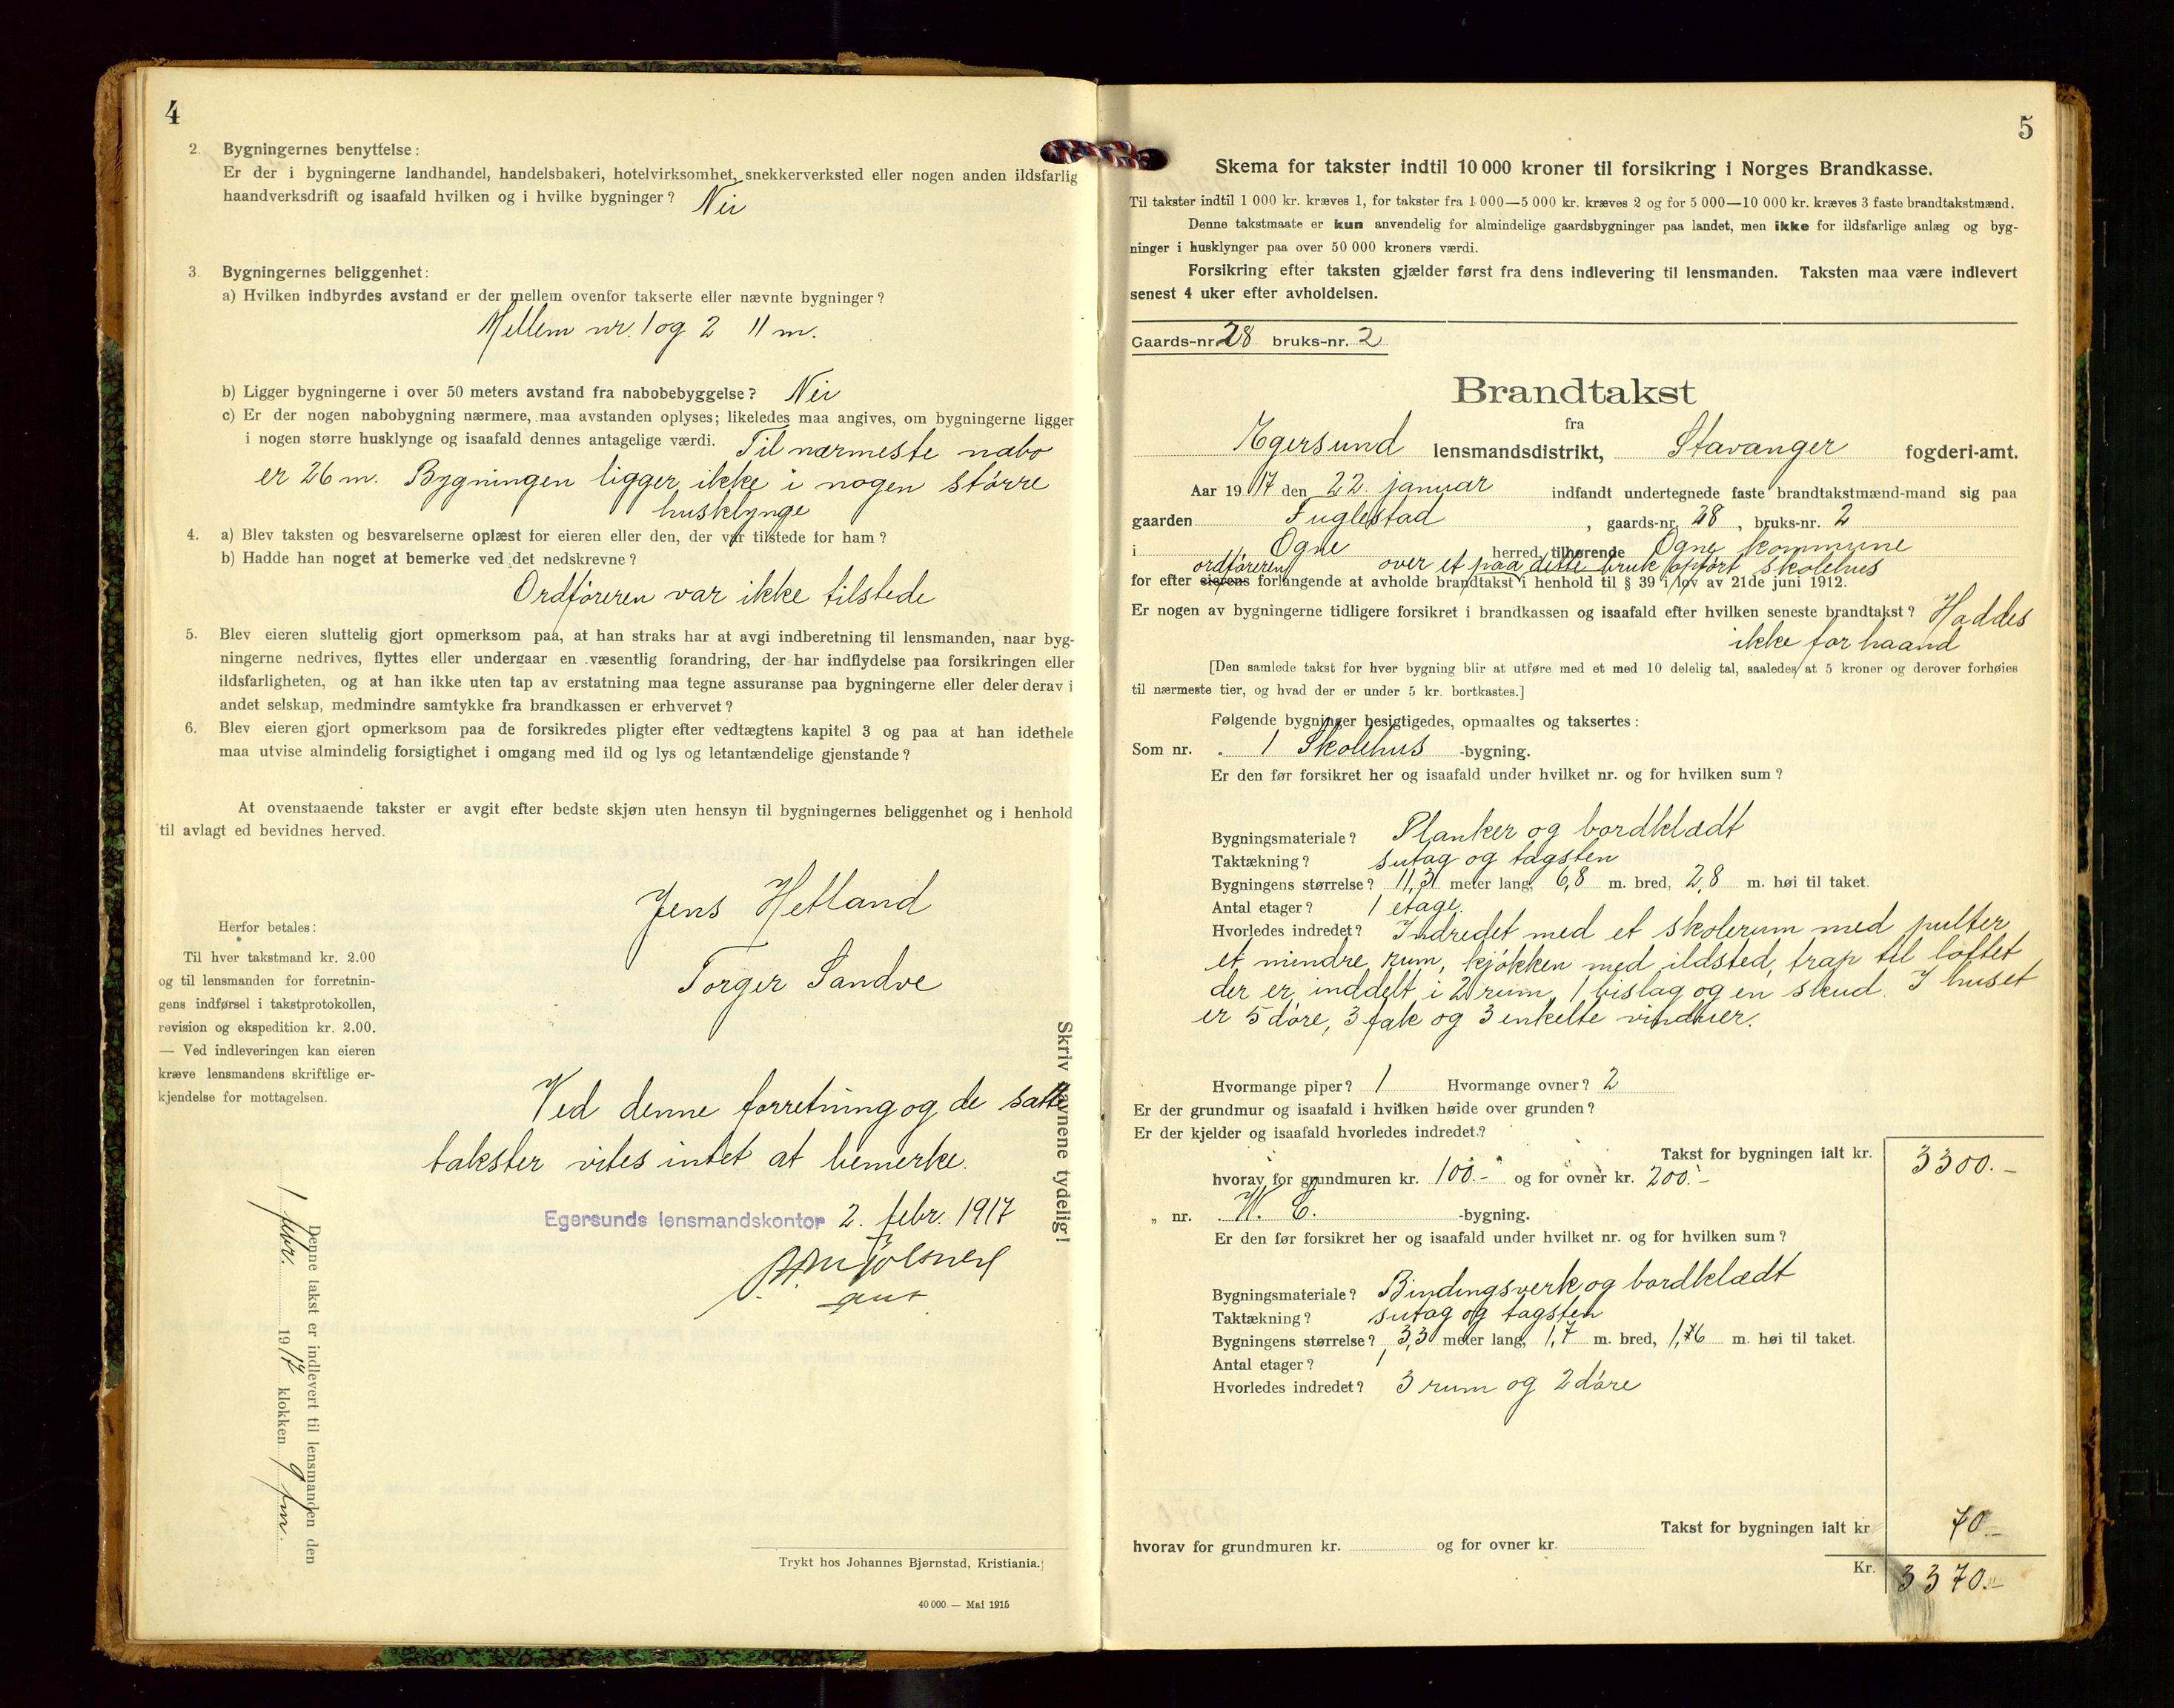 4
2. Bygningernes benyttelse:
Er der i bygningerne landhandel, handelsbakeri, hotelvirksomhet, snekkerverksted eller nogen anden ildsfarlig
haandverksdrift og isaafald hvilken og i hvilke bygninger? Nei
3. Bygningernes beliggenhet:
a) Hvilken indbyrdes avstand er der mellem ovenfor takserte eller nævnte bygninger?
Mellem nr. 1 og 2 11 m.
b) Ligger bygningerne i over 50 meters avstand fra nabobebyggelse? Nei
c) Er der nogen nabobygning nærmere, maa avstanden oplyses; likeledes maa angives, om bygningerne ligger
i nogen større husklynge og isaafald dennes antagelige værdi. Til nærmeste nabo
er 26 m. Bygningen ligger ikke i nogen større
husklynge
4. a) Blev taksten og besvarelserne oplæst for eieren eller den, der var tilstede for ham?
b) Hadde han noget at bemerke ved det nedskrevne?
Ordføreren var ikke tilstede
5. Blev eieren sluttelig gjort opmerksom paa, at han straks har at avgi indberetning til lensmanden, naar byg-
ningerne nedrives, flyttes eller undergaar en væsentlig forandring, der har indflydelse paa forsikringen eller
ildsfarligheten, og at han ikke uten tap av erstatning maa tegne assuranse paa bygningerne eller deler derav i
andet selskap, medmindre samtykke fra brandkassen er erhvervet?
6. Blev eieren gjort opmerksom paa de forsikredes pligter efter vedtægtens kapitel 3 og paa at han idethele
maa utvise almindelig forsigtighet i omgang med ild og lys og letantændelige gjenstande?
At ovenstaaende takster er avgit efter bedste skjøn uten hensyn til bygningernes beliggenhet og i henhold
til avlagt ed bevidnes herved.
Jens Hetland
Torger Sandve
Herfor betales:
Til hver takstmand kr. 2.00
og til lensmanden for forretnin-
gens indførsel i takstprotokollen,
revision og ekspedition kr. 2.00.
— Ved indleveringen kan eieren
kræve lensmandens skriftlige er-
kjendelse for mottagelsen.
Ved denne forretning og de satte
takster vites intet at bemerke.
Egersunds lensmandskontor 2. febr. 1917
Skriv navnene tydelig!
Denne takst er indlevert til lensmanden den
1 febr. 1917 klokken 9 fm.
Trykt hos Johannes Bjørnstad, Kristiania.
40 000. — Mai 1915
5
Skema for takster indtil 10 000 kroner til forsikring i Norges Brandkasse.
Til takster indtil 1 000 kr. kræves 1, for takster fra 1 000—5 000 kr. kræves 2 og for 5 000—10 000 kr. kræves 3 faste brandtakstmænd.
Denne takstmaate er kun anvendelig for almindelige gaardsbygninger paa landet, men ikke for ildsfarlige anlæg og byg-
ninger i husklynger paa over 50 000 kroners værdi.
Forsikring efter taksten gjælder først fra dens indlevering til lensmanden. Taksten maa være indlevert
senest 4 uker efter avholdelsen.
Gaards-nr. 28 bruks-nr. 2
Brandtakst
fra
Egersund lensmandsdistrikt, Stavanger fogderi-amt.
Aar 1917 den 22. januar indfandt undertegnede faste brandtakstmænd-mand sig paa
gaarden Fuglestad, gaards-nr. 28, bruks-nr. 2
i Ogne herred, tilhørende Ogne kommune
ordføreren over et paa dette bruk opført skolehus
for efter eierens forlangende at avholde brandtakst i henhold til § 39 i lov av 21de juni 1912.
Er nogen av bygningerne tidligere forsikret i brandkassen og isaafald efter hvilken seneste brandtakst? Haddes
ikke for haand
[Den samlede takst for hver bygning blir at utføre med et med 10 delelig tal, saaledes at 5 kroner og derover forhøies
til nærmeste tier, og hvad der er under 5 kr. bortkastes.]
Følgende bygninger besigtigedes, opmaaltes og taksertes:
Som nr. 1 Skolehus -bygning.
Er den før forsikret her og isaafald under hvilket nr. og for hvilken sum?
Bygningsmateriale? Planker og bordklædt
Taktækning? sutag og tagsten
Bygningens størrelse? 11,31 meter lang, 6,8 m. bred, 2,8 m. høi til taket.
Antal etager? 1 etage.
Hvorledes indredet? Indredet med et skolerum med pulter
et mindre rum, kjøkken med ildsted, trap til loftet
der er inddelt i 2 rum, 1 bislag og en skud. I huset
er 5 døre, 3 fak og 3 enkelte vinduer.
Hvormange piper? 1 Hvormange ovner? 2
Er der grundmur og isaafald i hvilken høide over grunden?
Er der kjelder og isaafald hvorledes indredet?
Takst for bygningen ialt kr. 3300.-
hvorav for grundmuren kr. 100.- og for ovner kr. 200.-
„ nr. W. C. -bygning.
Er den før forsikret her og isaafald under hvilket nr. og for hvilken sum?
Bygningsmateriale? Bindingsverk og bordklædt
Taktækning? sutag og tagsten
Bygningens størrelse? 3,3 meter lang, 1,7 m. bred, 1,76 m. høi til taket.
Antal etager? 1
Hvorledes indredet? 3 rum og 2 døre
Takst for bygningen ialt kr. 70.-
hvorav for grundmuren kr. og for ovner kr.
Kr. 3370.-